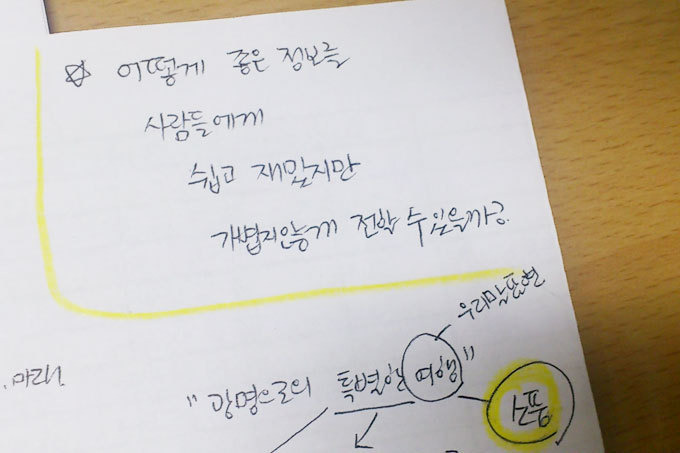 ☆ 어떻게 좋은 정보를
사람들에게
쉽고 재밌지만
개볍지않늫게 전할 수 있을까?
우리말표현
.마래.
"광명으로의 특별한 여행"
소풍